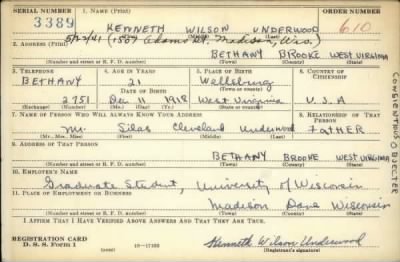 SERIAL NUMBER 1. NAME (Print) ORDER NUMBER
3389 KENNETH WILSON UNDERWOOD 610
(First) (Middle) (Last)
5/23/41 (1507 Adams St. Madison, Wis.)
2. ADDRESS (Print)
BETHANY BROOKE WEST VIRGINIA
(Number and street or R. F. D. number) (Town) (County) (State)
3. TELEPHONE 4. AGE IN YEARS 5. PLACE OF BIRTH 6. COUNTRY OF CITIZENSHIP
BETHANY 21 Wellsburg
DATE OF BIRTH (Town or county)
2751 Dec 11 1918 West Virginia U.S.A
(Exchange) (Number) (Mo.) (Day) (Yr.) (State or country)
7. NAME OF PERSON WHO WILL ALWAYS KNOW YOUR ADDRESS 8. RELATIONSHIP OF THAT PERSON
Mr. Silas Cleveland Underwood FATHER
(Mr., Mrs., Miss) (First) (Middle) (Last)
9. ADDRESS OF THAT PERSON
BETHANY BROOKE WEST VIRGINIA
(Number and street or R. F. D. number) (Town) (County) (State)
10. EMPLOYER'S NAME
Graduate Student, University of Wisconsin
11. PLACE OF EMPLOYMENT OR BUSINESS
Madison Dane Wisconsin
(Number and street or R. F. D. number) (Town) (County) (State)
I AFFIRM THAT I HAVE VERIFIED ABOVE ANSWERS AND THAT THEY ARE TRUE.
REGISTRATION CARD
D. S. S. FORM 1 16-17105 Kenneth Wilson Underwood
(Registrant's signature)
CONSCIENTIOUS OBJECTER